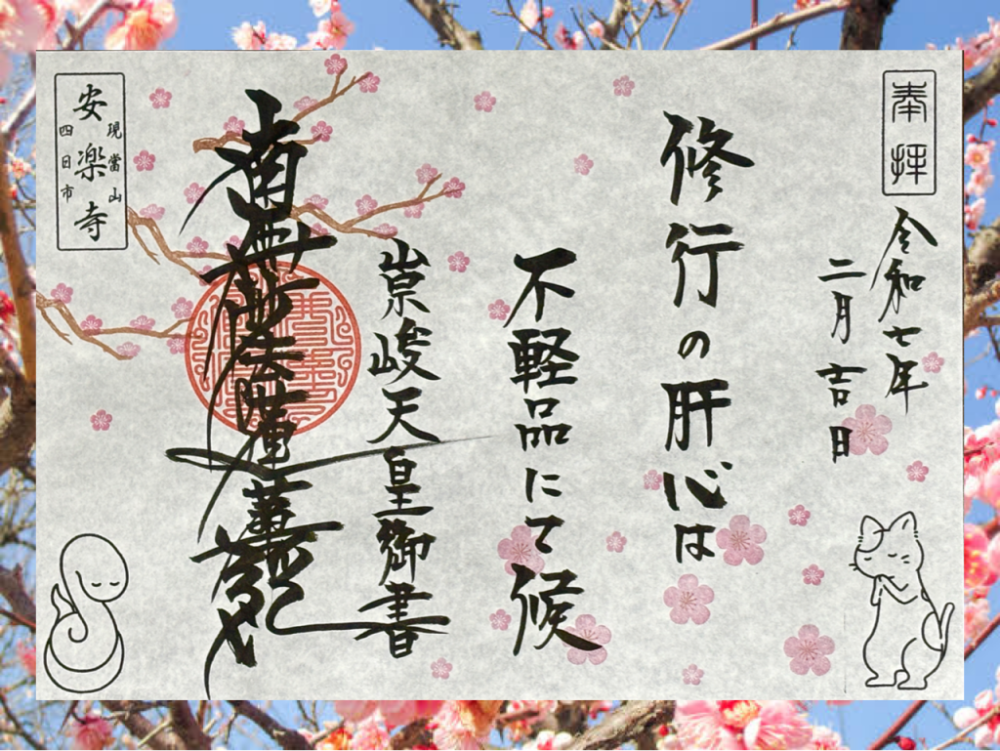 奉拝
令和七年
二月吉日
修行の肝心は
不軽品にて候
崇峻天皇御書
南無妙法蓮華経
現當山
安楽寺
四日市